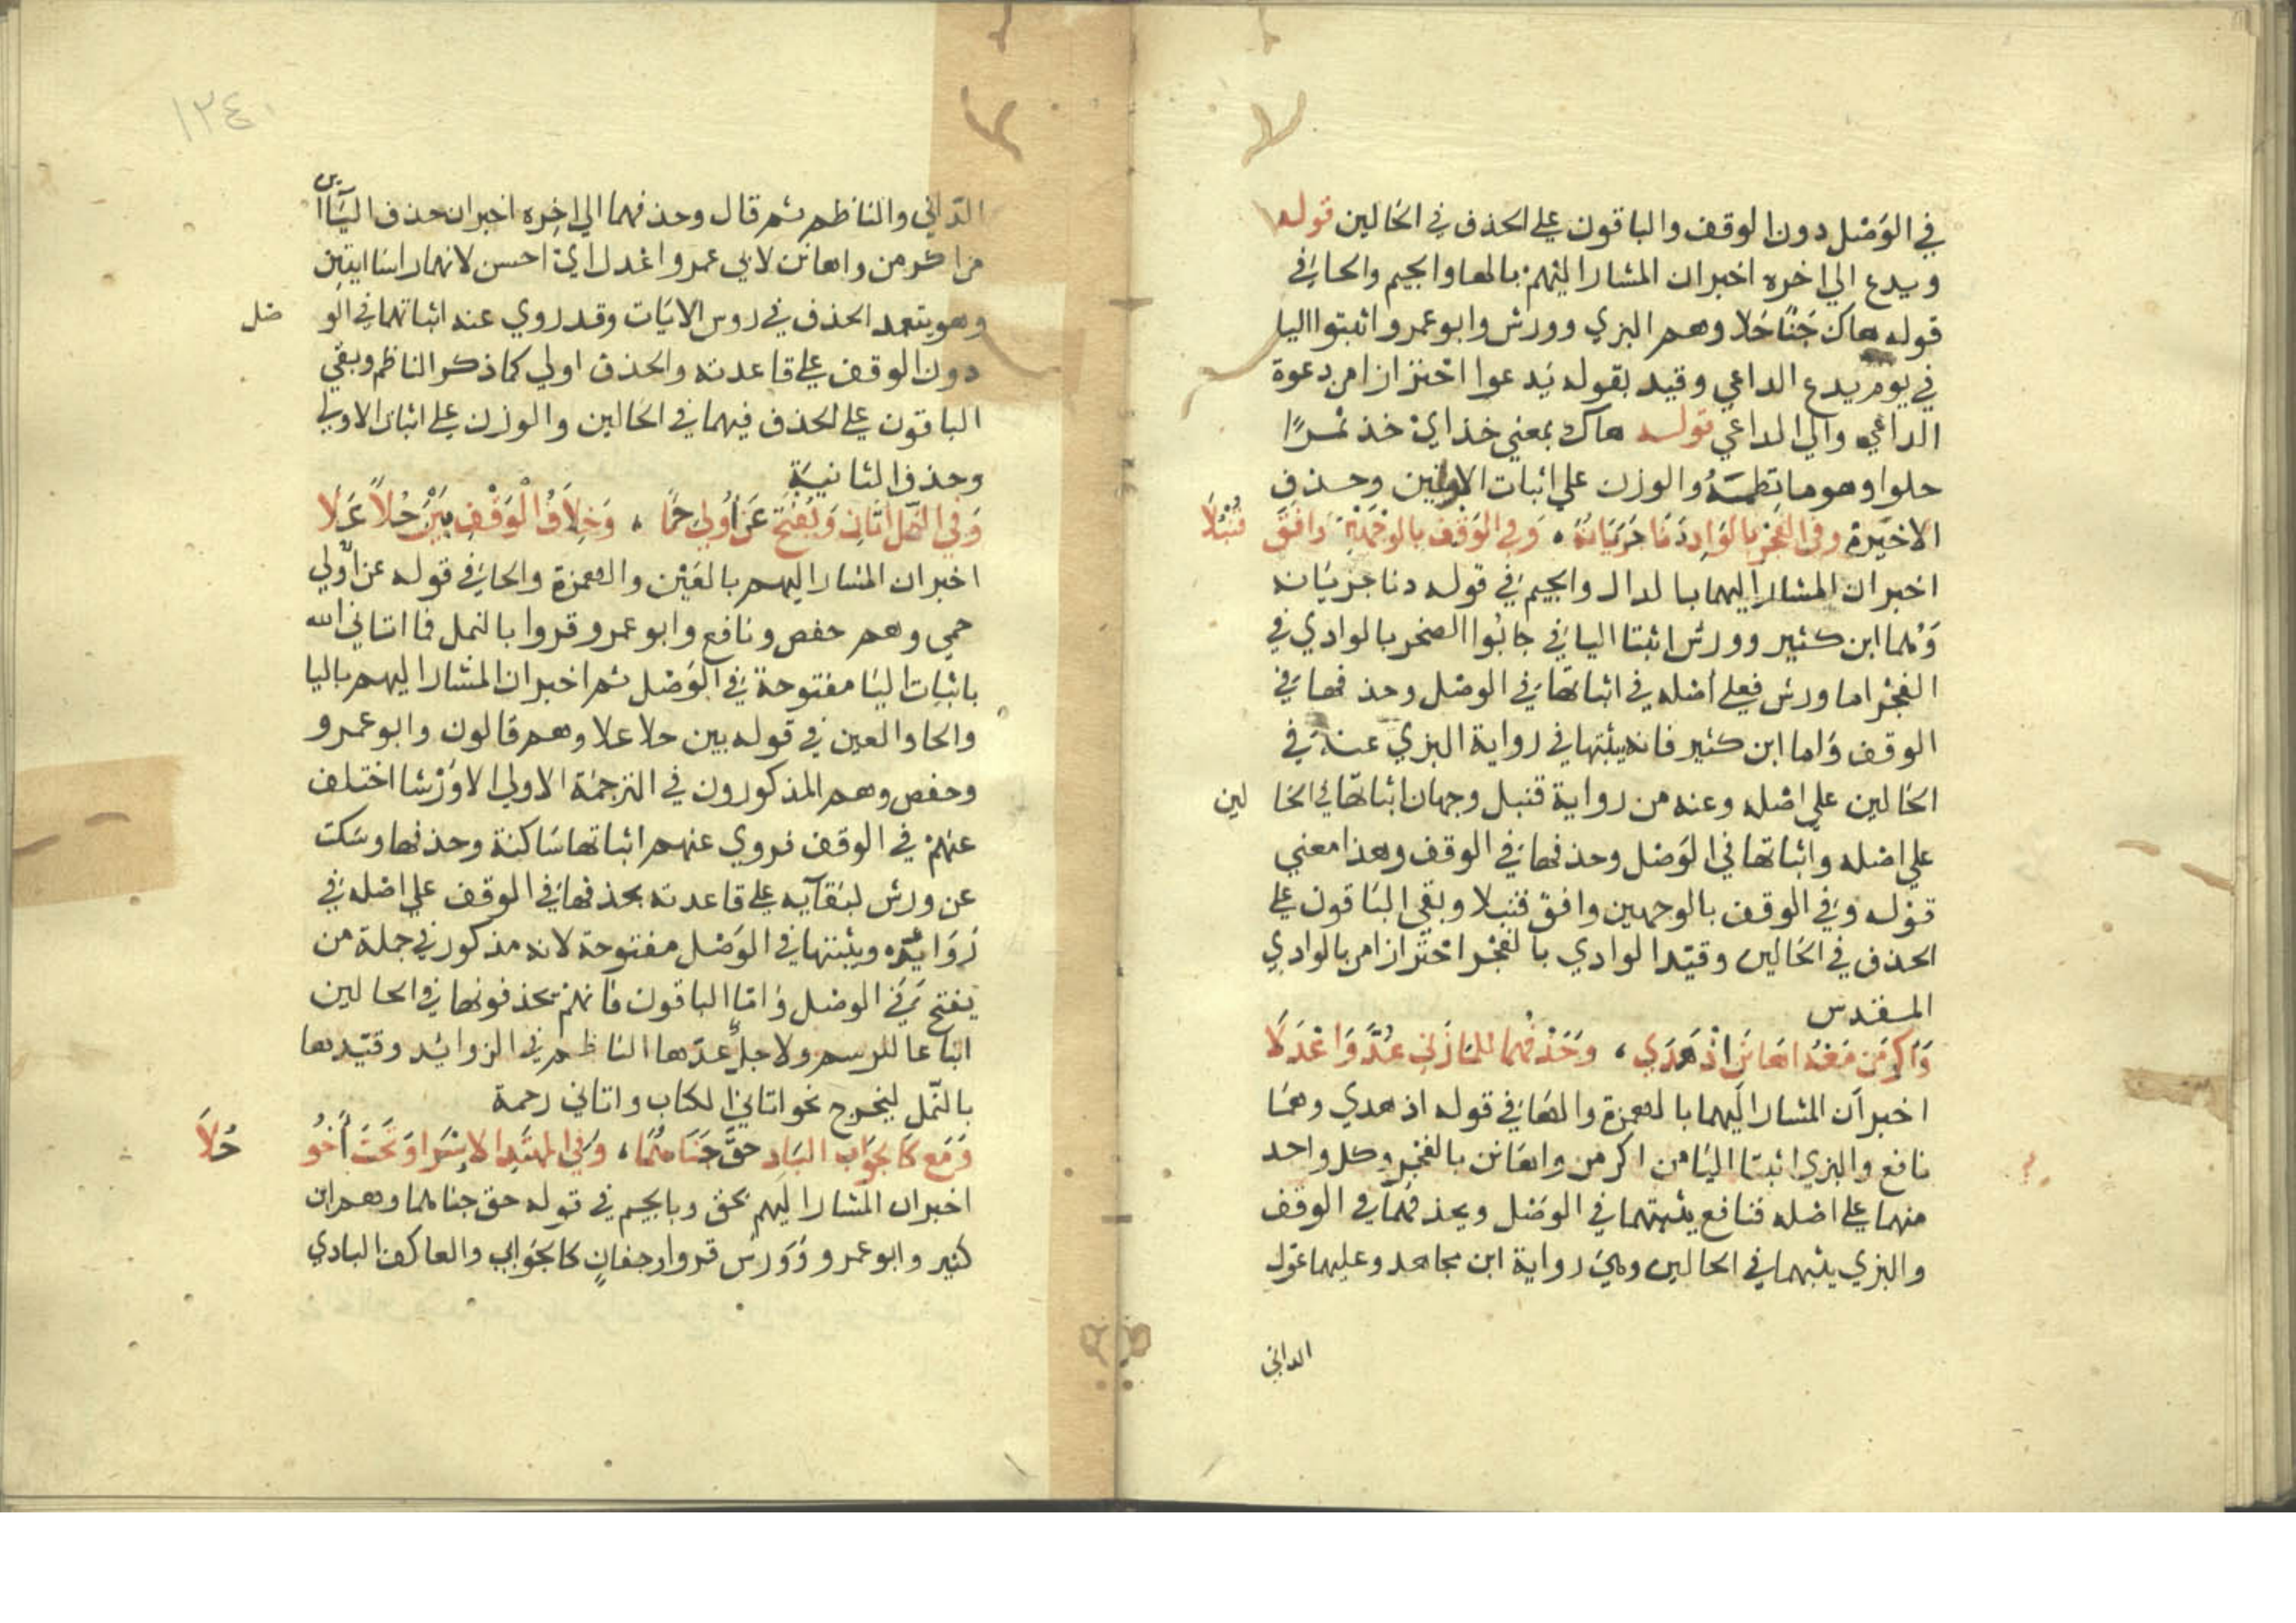 في الوَصْل دون الوقف والباقون علي الحذف في الحَالين قوله
ويدع الي اخره اخبر ان المشار اليهمْ بالها والجيم والحا في
قوله هاك جَنًا حَلا وهم البزي وورش وابو عمرو اثبتوا اليا
في يوم يدع الداعي وقيد بقوله يَدعوا احْتزازا من دعوة
الداعي والي الداعي قوله هاك بمعني خذ ايْ خذ ثمرًا
حلوا وهو ما نظمته والوزن علي اثبات الاوليين وحذف
الاخيَرة وفي الفجْرِ بالوَادِ دَنَا جَرَيَانُهُ، وَفي الوَقْفِ بالوَجْهَيْنِ وَافَقَ قُنْبُلَا
اخبر ان المشار اليهما بالدال والجيم في قوله دنا جزيَانه
وَهُما ابن كثير وورش اثبتا اليا في جابُوا الصخر بالوادي في
الفجْر اما ورش فعلي أصْله في اثباتها في الوصْل وحذفها في
الوقف وَاما ابن كثير فانه يثبتها في رواية البزي عنه في
الحَالين علي اصْله وعنه من رواية قنبل وجهان اثباتهَا في الحَا لين
علي اصْله واثباتها في الوَصْل وحذفها في الوقف وهذا معني
قوْله وَفي الوقف بالوجهين وافق قنبلا وبقي البَاقون علي
الحذف في الحَالين وقيّد الوادي بالفجْر احْتَزازا من بالوادي
المقدس
وَاكرمَن مَعْهُ اهَانَن اذْ هَدَي، وَحَذْفُهُما للمَازني عُدَّ وَاعْدَلَا
اخبر أن المشار اليهما بالهمزة والهَا في قوله اذ هدي وهمَا
نافع والبزي اثبتا اليَا من اكرمن واهَانن بالفجْر وكل واحد
منهما علي اصْله فنافع يثبتهما في الوَصْل ويحذفهمَا في الوقف
والبزي يثبتهما في الحالين وهيَ رواية ابن مجاهد وعليهما عَول
الداني
١٣٤
الدّاني والناظم ثم قال وحذفهما الي اخِره اخبر ان حذف اليَاا ين
من اكرمن واهانن لابي عمرو اعْدل ايْ احسن لانهما راسا ايتين
وهو يتعمد الحذف في روس الايَات وقد روي عنه اثباتهما في الو صْل
دون الوقف علي قاعدته والحذف اولي كما ذكر الناظم وبقي
الباقون علي الحذف فيهما في الحَالين والوزن علي اثبات الاولي
وحذف الثانيَة
وَفي النّمْل اتَانِ وَيُفْتَحُ عَن اُولي حِمًا، وَخِلَافُ الْوَقْفِ بَيْنَ حُلاً عَلَا
اخبر ان المشار اليهم بالعَيْن والهمزة والحا في قوله عن اُولي
حمي وهم حفص ونافع وابو عمرو قروا بالنمل فما اتاني الله
باثبات اليَا مفتوحة في الوَصْل ثم اخبر ان المشار اليهم باليا
والحا والعين في قوله بين حلا علا وهم قالون وابو عمرو
وحفص وهم المذكورون في الترجمَة الاولي الا وَرْشا اختلف
عنهمْ في الوقف فروي عنهم اثباتها سَاكنة وحذفها وسَكت
عن ورش لبَقَآيه علي قاعدته بحذفها في الوقف علي اصْله في
زَوَايده ويثبتها في الوَصْل مفتوحة لانه مذكور في جملة من
يَفتح في الوصْل وامَّا الباقون فانهم يحذفونها في الحالين
اتباعا للرسم ولاجل عدّها الناظم في الزوايد وقيّدها
بالنّمل ليَخرج نحو اتاني الكتاب واتاني رحمة
وَمَع كَالجَوَابِ البَادِ حقَّ جَنَاهُمَا، وَفي المُهْتَدِ الاِسْرَا وَتَحْتَ أخُو حُلَا
اخبر ان المشار اليَهم بحق وبالجيم في قوله حق جناهما وهم ابن
كثير وابو عمرو وَوَرش قروا وجفانٍ كالجَوابي والعاكف البادي